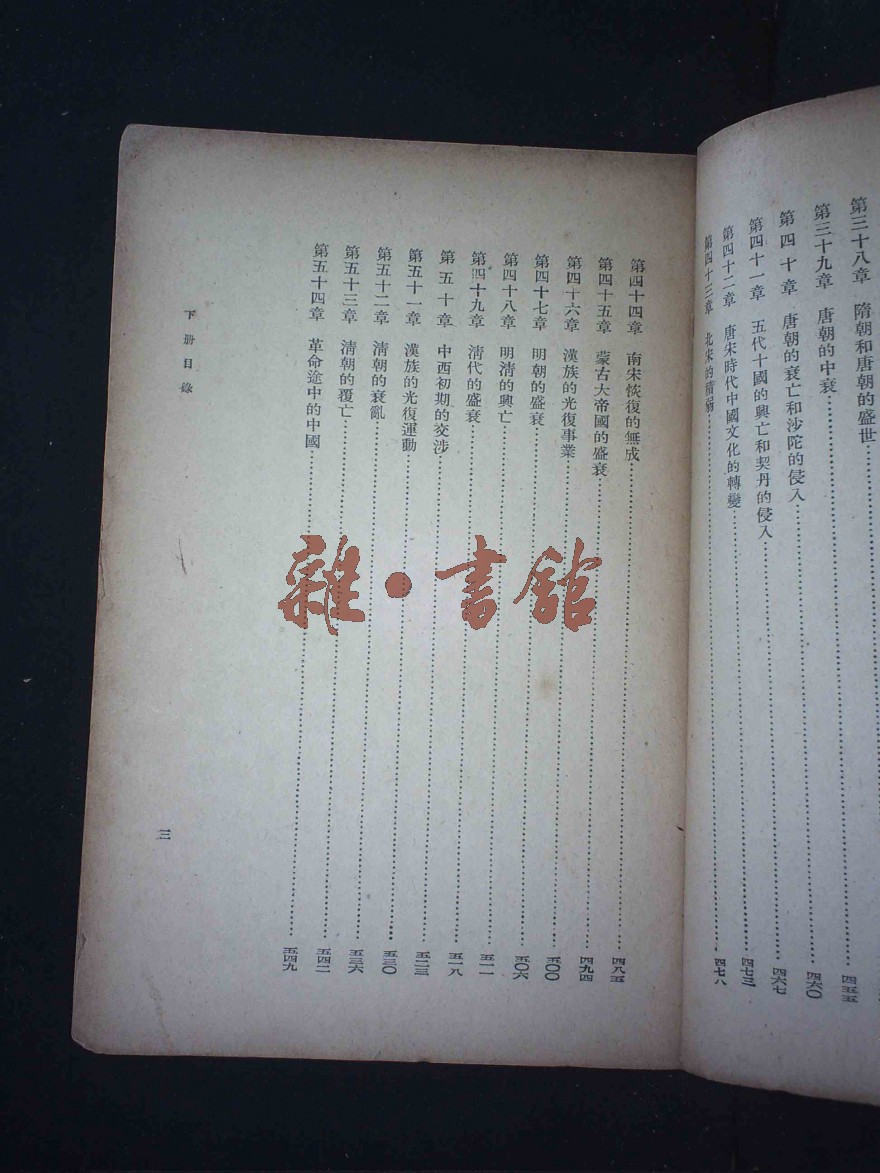 第三十八章 隋朝和唐朝的盛世
第三十九章 唐朝的中衰……四五五
第四十章 唐朝的衰亡和沙陀的侵入……四六〇
第四十一章 五代十國的興亡和契丹的侵入……四六七
第四十二章 唐宋時代中國文化的轉變……四七三
第四十三章 北宋的積弱……四七八
第四十四章 南宋恢復的無成……四八五
第四十五章 蒙古大帝國的盛衰……四九四
第四十六章 漢族的光復事業……五〇〇
第四十七章 明朝的盛衰……五〇六
第四十八章 明清的興亡……五一一
第四十九章 清代的盛衰……五一八
第五十章 中西初期的交涉……五二三
第五十一章 漢族的光復運動……五三〇
第五十二章 清朝的衰亂……五三六
第五十三章 清朝的覆亡……五四二
第五十四章 革命途中的中國……五四九
下册目錄
三
雜·書館